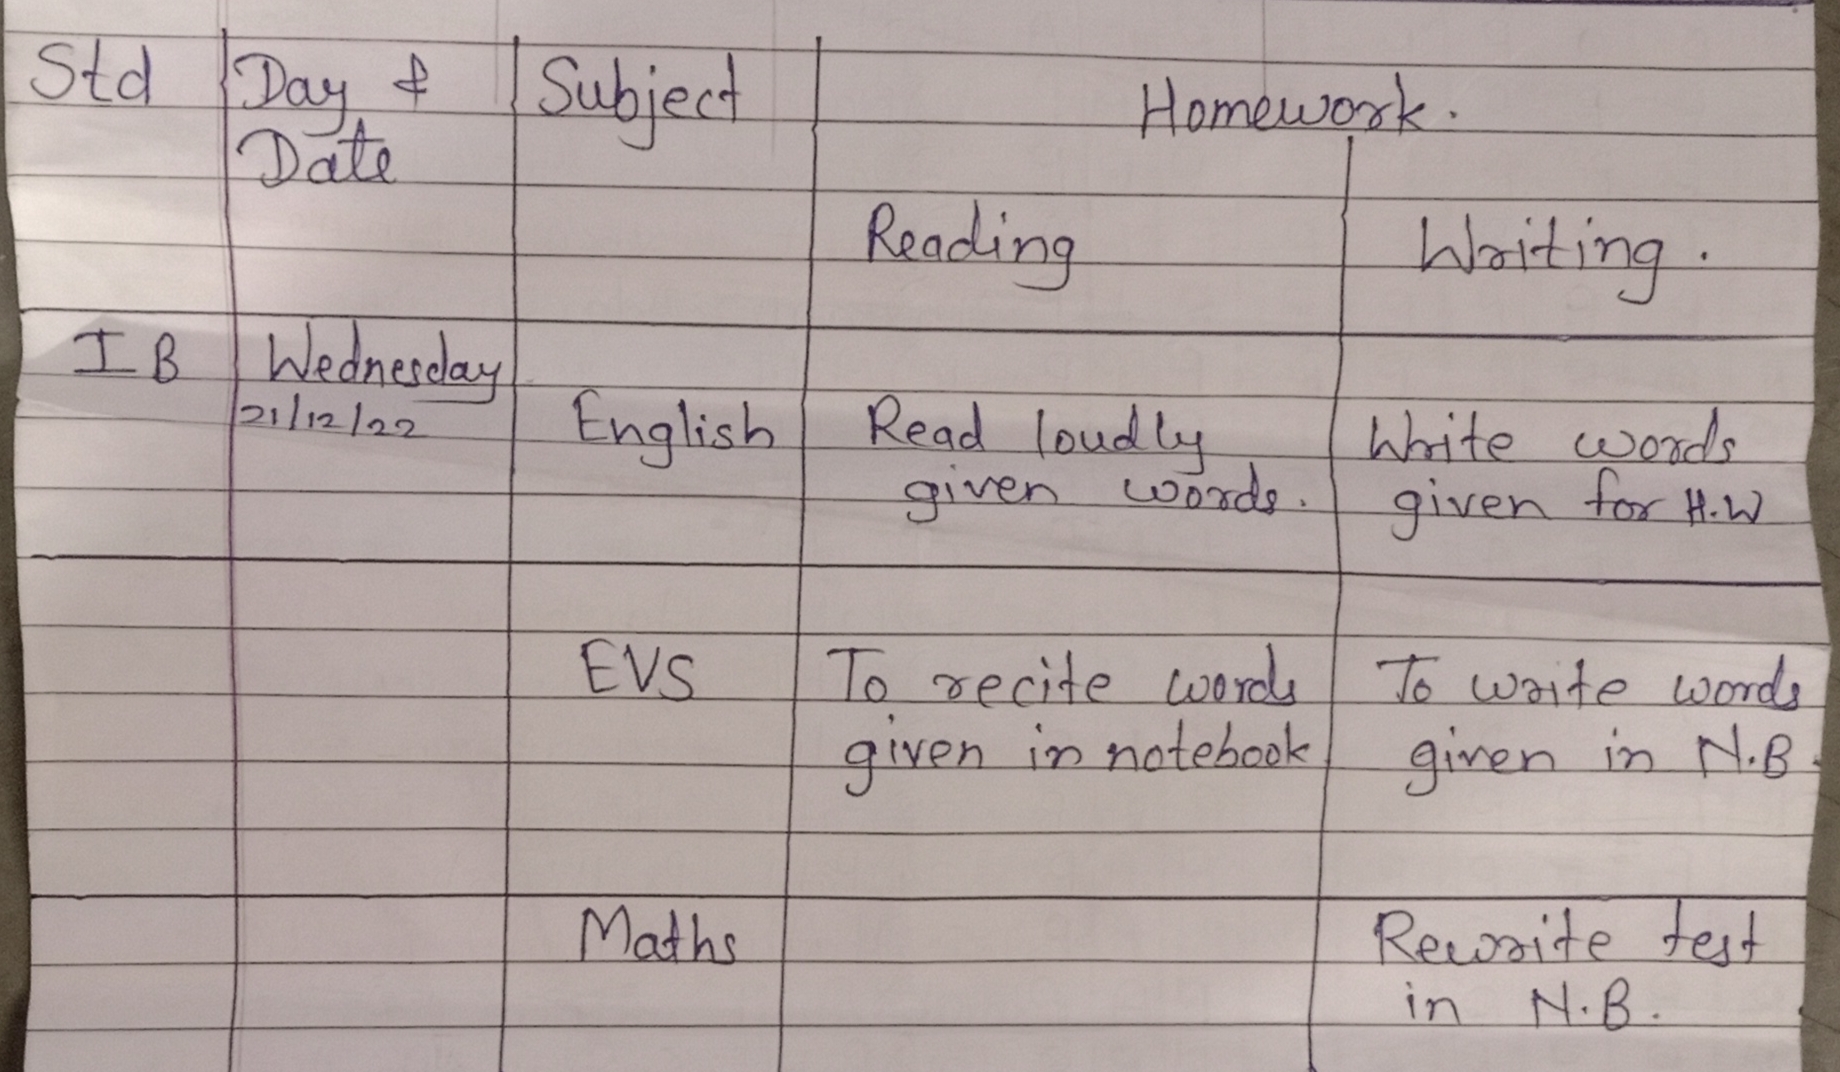 Std Day & Subject Homework.
Date
Reading Writing.
I B Wednesday
21/12/22 English Read loudly Write words
given words. given for H.W
EVS To recite words To write words
given in notebook given in N.B.
Maths Rewrite test
in N.B.